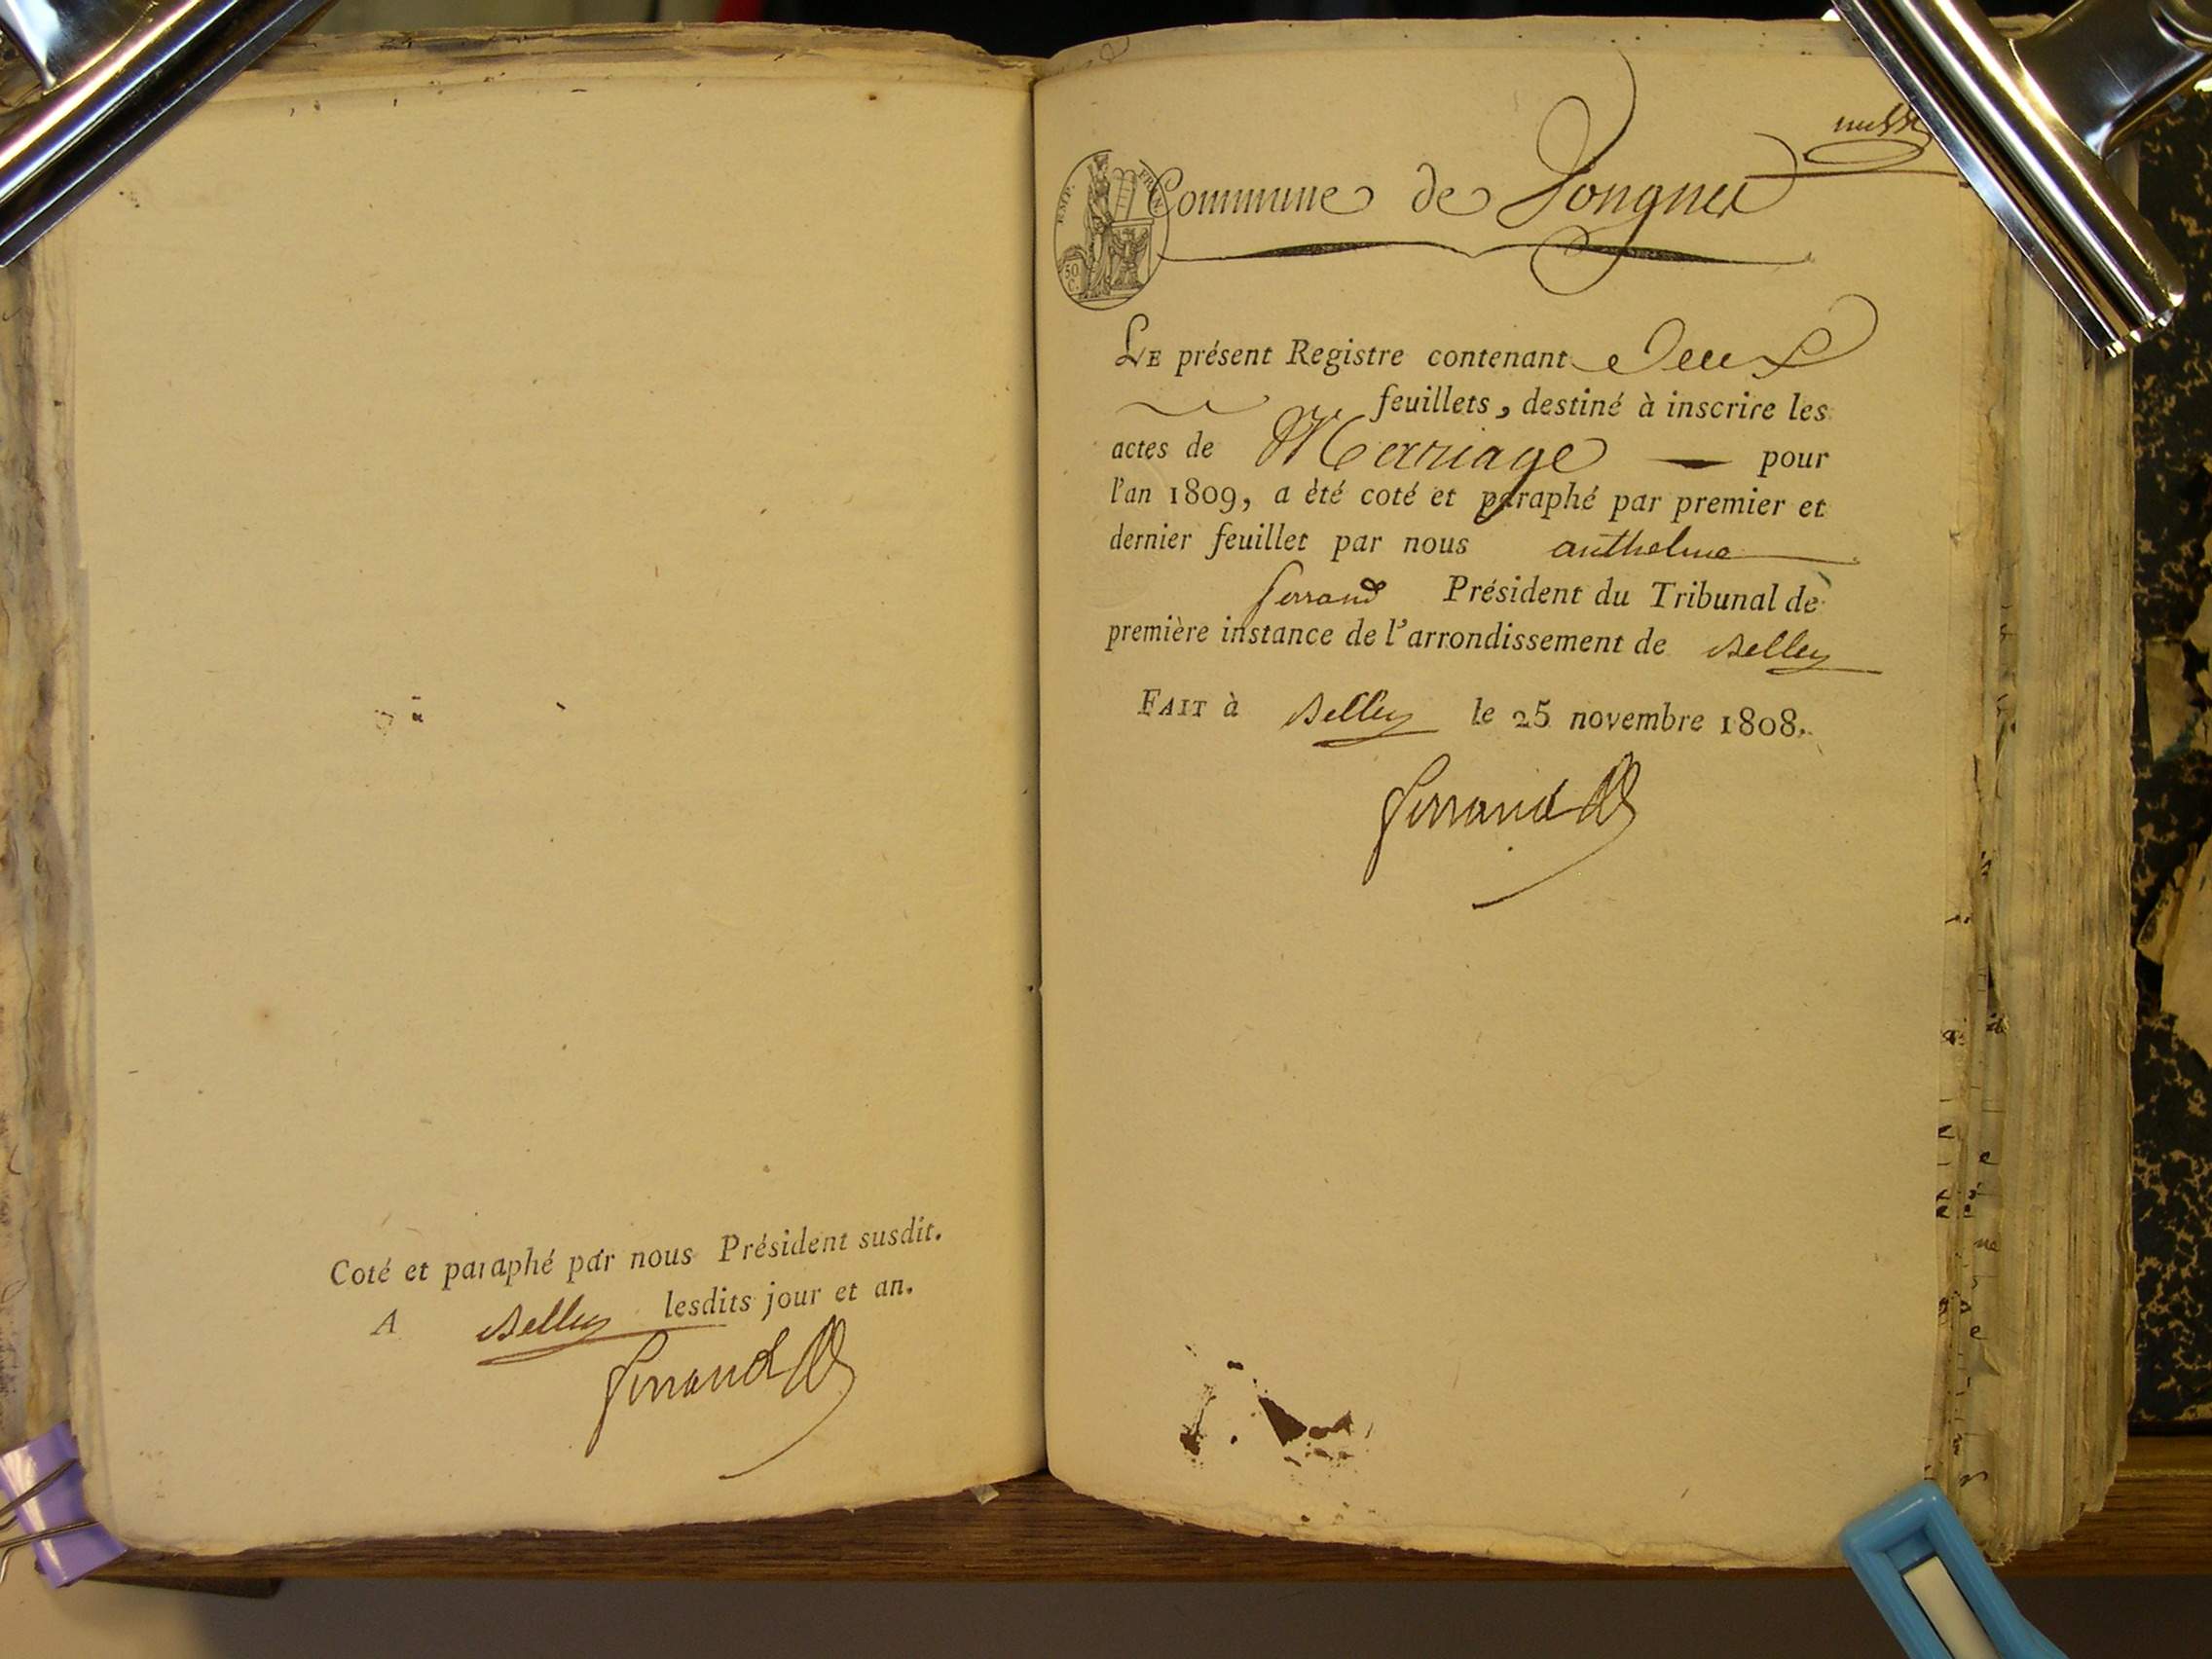 Coté et paraphé par nous Président susdit.
A Belley lesdits jour et an.
ferrand
EMP. FRAN.
50 C.
Commune de Songneu
LE présent Registre contenant Deux
feuillets, destiné à inscrire les
actes de Marriage pour
l'an 1809, a été coté et paraphé par premier et
dernier feuillet par nous anthelme
ferrand Président du Tribunal de
première instance de l'arrondissement de Belley
FAIT à Belley le 25 novembre 1808.
ferrand